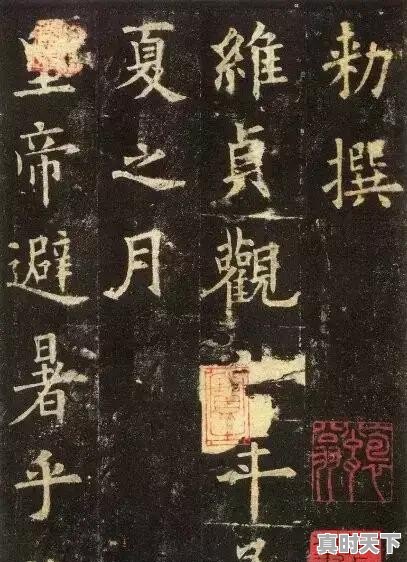 勅撰
維貞觀六年
夏之月
皇帝避暑乎
真时天下